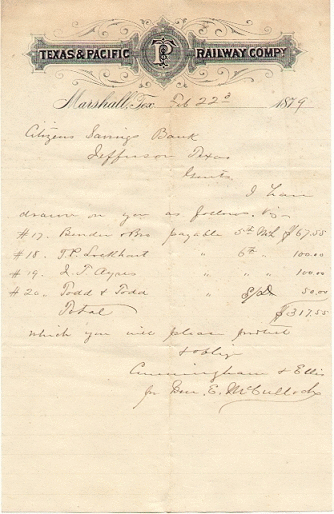 TEXAS & PACIFIC TP RAILWAY COMPY
Marshall, Tex. Feb 22d 1879
Citizens Savings Bank
Jefferson Texas
Gents
I have
drawn on you as follows. Viz
#17. Bender & Bro payable 5th $67.55
#18. J.P. Lockhart " 6th " 100.00
#19. Ayres " " " 100.00
#20. Todd & Todd " 50.00
Total $317.55
which you will please protect
& oblige
Cunningham & Ellis
for E. McCulloch